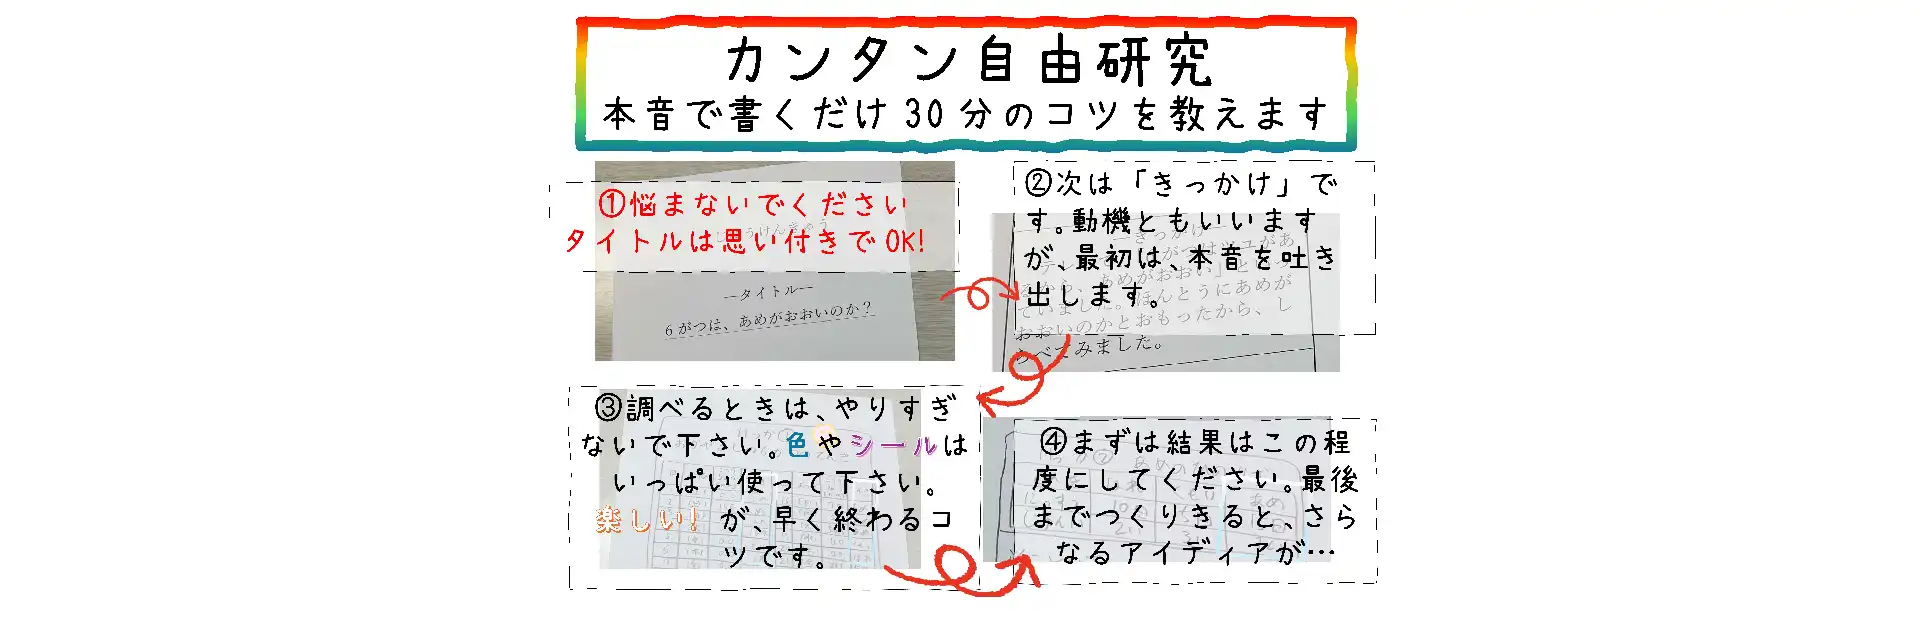 カンタン自由研究
本音で書くだけ30分のコツを教えます
①悩まないでください
タイトルは思い付きでOK!
―タイトル―
6がつは、あめがおおいのか?
②次は「きっかけ」で
す。動機ともいいます
が、最初は、本音を吐き
出します。
ていました。ほんとうにあめが
おおいのかとおもったから、し
らべてみました。
③調べるときは、やりすぎ
ないで下さい。色やシールは
いっぱい使って下さい。
楽しい!が、早く終わるコ
ツです。
④まずは結果はこの程
度にしてください。最後
までつくりきると、さら
なるアイディアが…